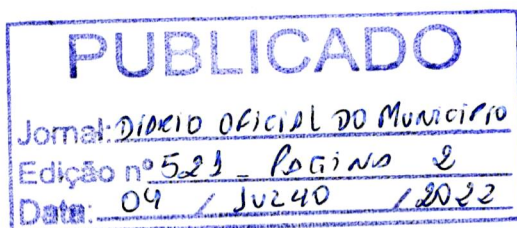 PUBLICADO
Jornal: DIÁRIO OFICIAL DO MUNICÍPIO
Edição nº 521 - PAGINA 2
Data: 04 / JULHO / 2022